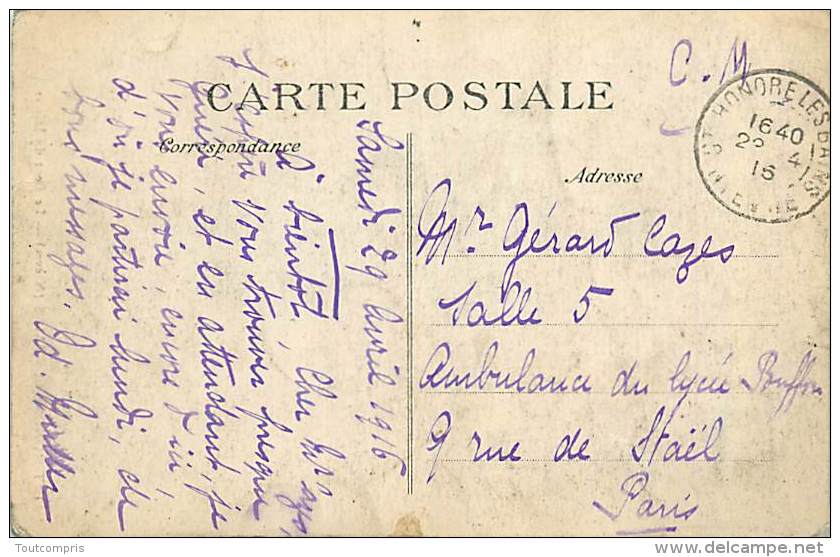 C.M
CARTE POSTALE
Correspondance
Adresse
ST HONORE LES BAINS
1640
29 4
16
NIEVRE
Samedi 29 Avril 1916
à bientôt, Cher
J'espère vous trouver presque
guéri, et en attendant, je
vous envoie, encore d'ici
d'où je partirai lundi, de
bons messages. Ed.
Mr. Gérard Cazes
Salle 5
Ambulance du lycée Buffon
9 rue de Staël
Paris
Toutcompris
delcampe.net